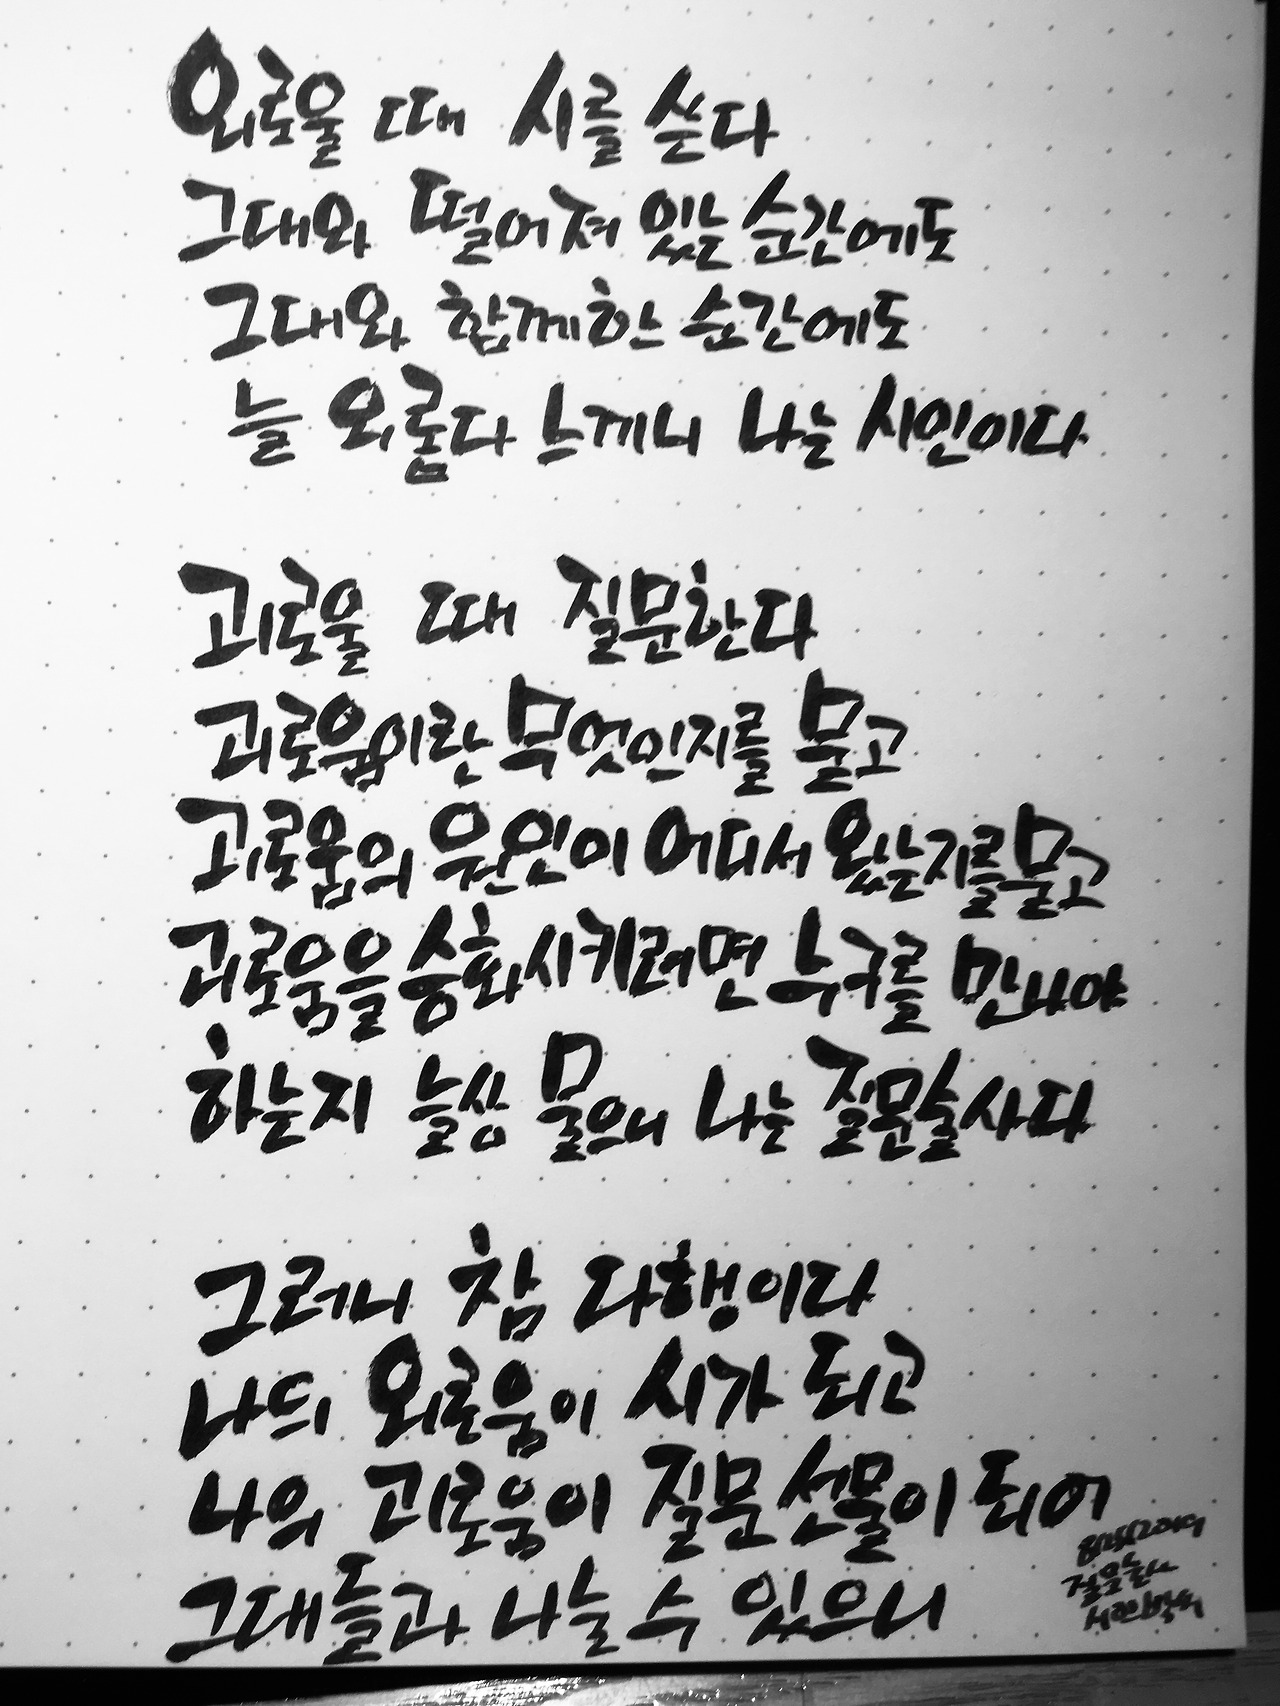 외로울 때 시를 쓴다
그대와 떨어져 있는 순간에도
그대와 함께한 순간에도
늘 외롭다 느끼니 나는 시인이다
괴로울 때 질문한다
괴로움이란 무엇인지를 묻고
괴로움의 원인이 어디서 왔는지를 묻고
괴로움을 승화시키려면 누구를 만나야
하는지 늘상 물으니 나는 질문술사다
그러니 참 다행이다
나의 외로움이 시가 되고
나의 괴로움이 질문 선물이 되어
그대들과 나눌 수 있으니
질문술사